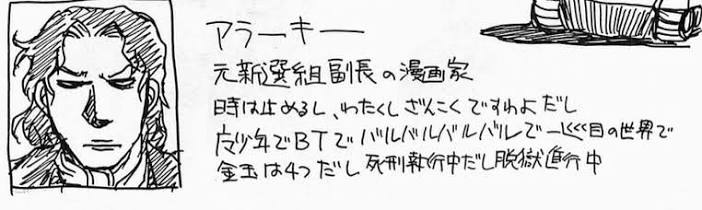 アラーキー
元新選組副長の漫画家
時は止めるし、わたくしざんこくですわよだし
魔少年でBTでバルバルバルバルで一巡目の世界で
金玉は4つだし死刑執行中だし脱獄進行中